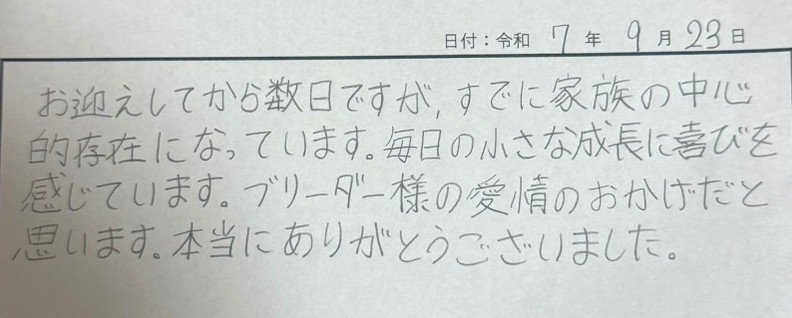 日付：令和 7 年 9 月 23 日
お迎えしてから数日ですが、すでに家族の中心
的存在になっています。毎日の小さな成長に喜びを
感じています。ブリーダー様の愛情のおかげだと
思います。本当にありがとうございました。